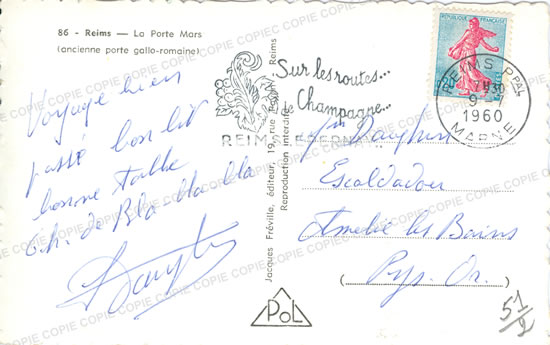 86 - Reims — La Porte Mars
(ancienne porte gallo-romaine)
Voyage bien
passé bon lit
bonne table
Ch. de Bla bla bla
Jacques Fréville, éditeur, 19, rue Reims
Reproduction interdite
PoL
Sur les routes...
de Champagne...
REIMS
REPUBLIQUE FRANÇAISE
REIMS PPAL
9
1960
MARNE
Escaldadou
Amélie les Bains
Pys. Or.
51
2
COPIE COPIE COPIE COPIE COPIE